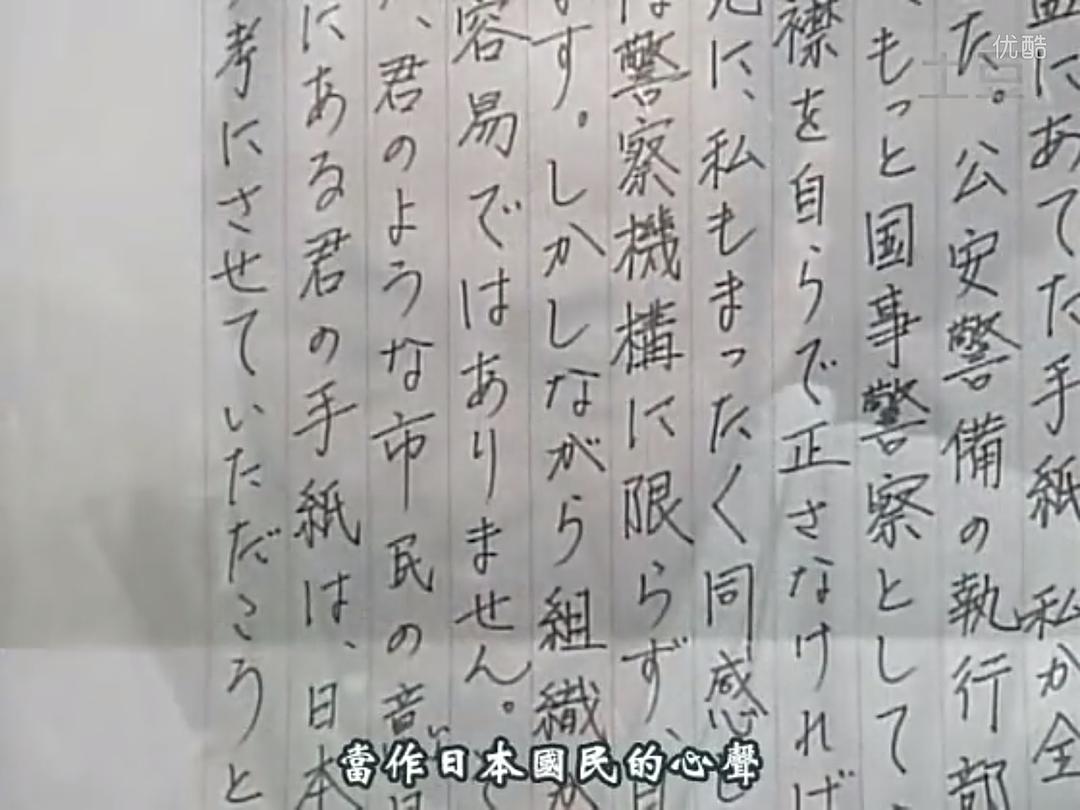 にあてた手紙 私が全
た。公安警備の執行部
もっと国事警察として、
襟を自らで正さなければ
に、私もまったく同感
は警察機構に限らず、
す。しかしながら組織
容易ではありません。
、君のような市民の意
にある君の手紙は、日本
考にさせていただこうと
當作日本國民的心聲
优酷
土豆